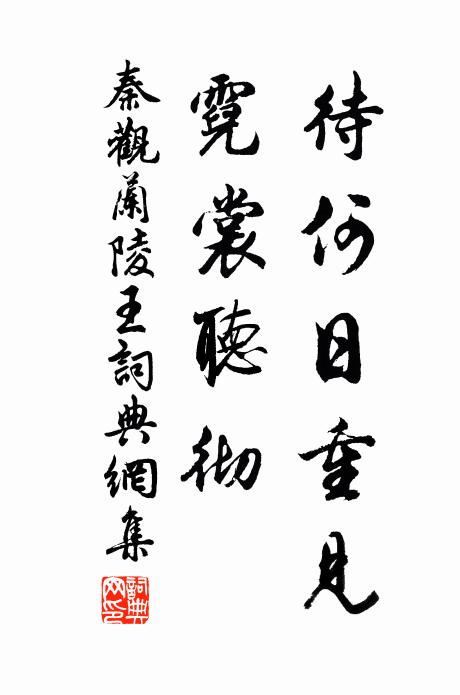 待何日重見
霓裳聽彻
秦觀蘭陵王詞典網集
詞典网印